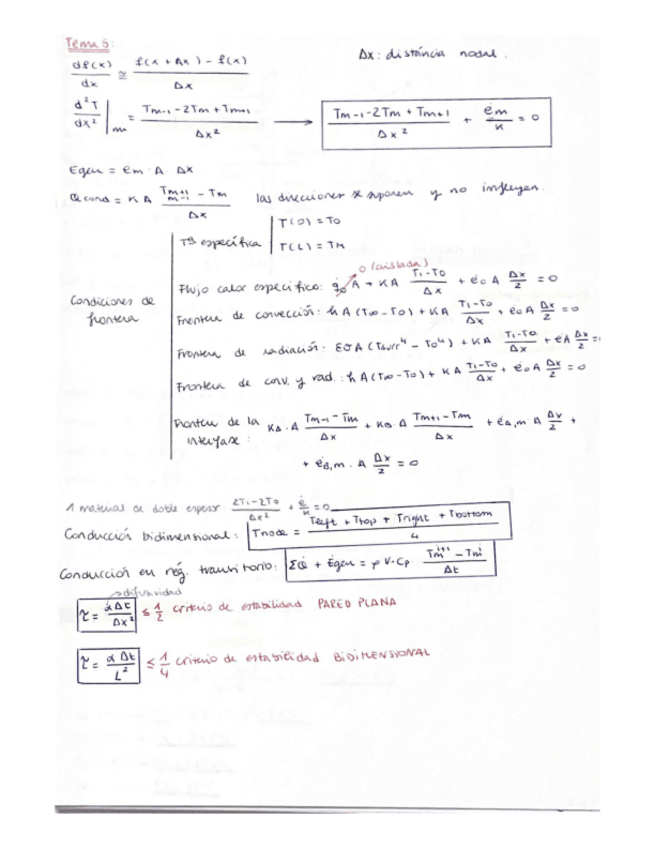 Tema 5:
df(x)/dx ≅ (f(x + Δx) - f(x))/Δx    Δx: distancia nodal.
d²T/dx² |m = (Tm-1 - 2Tm + Tm+1)/Δx² → (Tm-1 - 2Tm + Tm+1)/Δx² + ėm/k = 0
Egen = ėm · A · Δx
Q cond = K A (Tm+1 m-1 - Tm)/Δx    las direcciones se suponen y no influyen.
Condiciones de frontera
Tª específica | T(0) = T0
T(L) = TM
0 (aislada)
Flujo calor específico: q̇0 A + KA (T1-T0)/Δx + ė0 A Δx/2 = 0
Frontera de convección: h A (T∞ - T0) + KA (T1-T0)/Δx + ė0 A Δx/2 = 0
Frontera de radiación: εσA (Tsurr⁴ - T0⁴) + KA (T1-T0)/Δx + ėA Δx/2 =
Frontera de conv. y rad.: h A (T∞ - T0) + KA (T1-T0)/Δx + ė0 A Δx/2 = 0
Frontera de la interfase: KA · A (Tm-1 - Tm)/Δx + KB · A (Tm+1 - Tm)/Δx + ėA,m A Δx/2 +
+ ėB,m · A Δx/2 = 0
1 material de doble espesor: (2T1 - 2T0)/Δx² + ė/k = 0
Conducción bidimensional: Tnode = (Tleft + Ttop + Tright + Tbottom)/4
Conducción en rég. transitorio: ΣQ̇ + Ėgen = ρ V · Cp (Tm^(i+1) - Tm^i)/Δt
→ difusividad
τ = αΔt/Δx² ≤ 1/2 criterio de estabilidad PARED PLANA
τ = αΔt/L² ≤ 1/4 criterio de estabilidad BIDIMENSIONAL